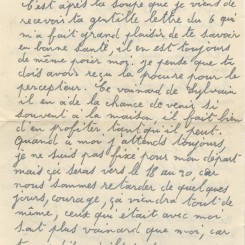 C'est après la soupe que je viens de
recevoir ta gentille lettre du 6 qui
m'a fait grand plaisir de te savoir
en bonne santé, il en est toujours
de même pour moi. je pense que tu
dois avoir reçu la procure pour le
percepteur. Ce vainard de Sylvain
il en a de la chance de venir si
souvent a la maison, il fait bien
d'en profiter tant qu'il peut.
Quand à moi j'attends toujours,
je ne suis pas fixé pour mon départ
mais ça seras vers le 18 au 20, car
nous sommes retarder de quelques
jours, courage, ça viendra tout de
même, ceux qui était avec moi
sont plus vainard que moi, car